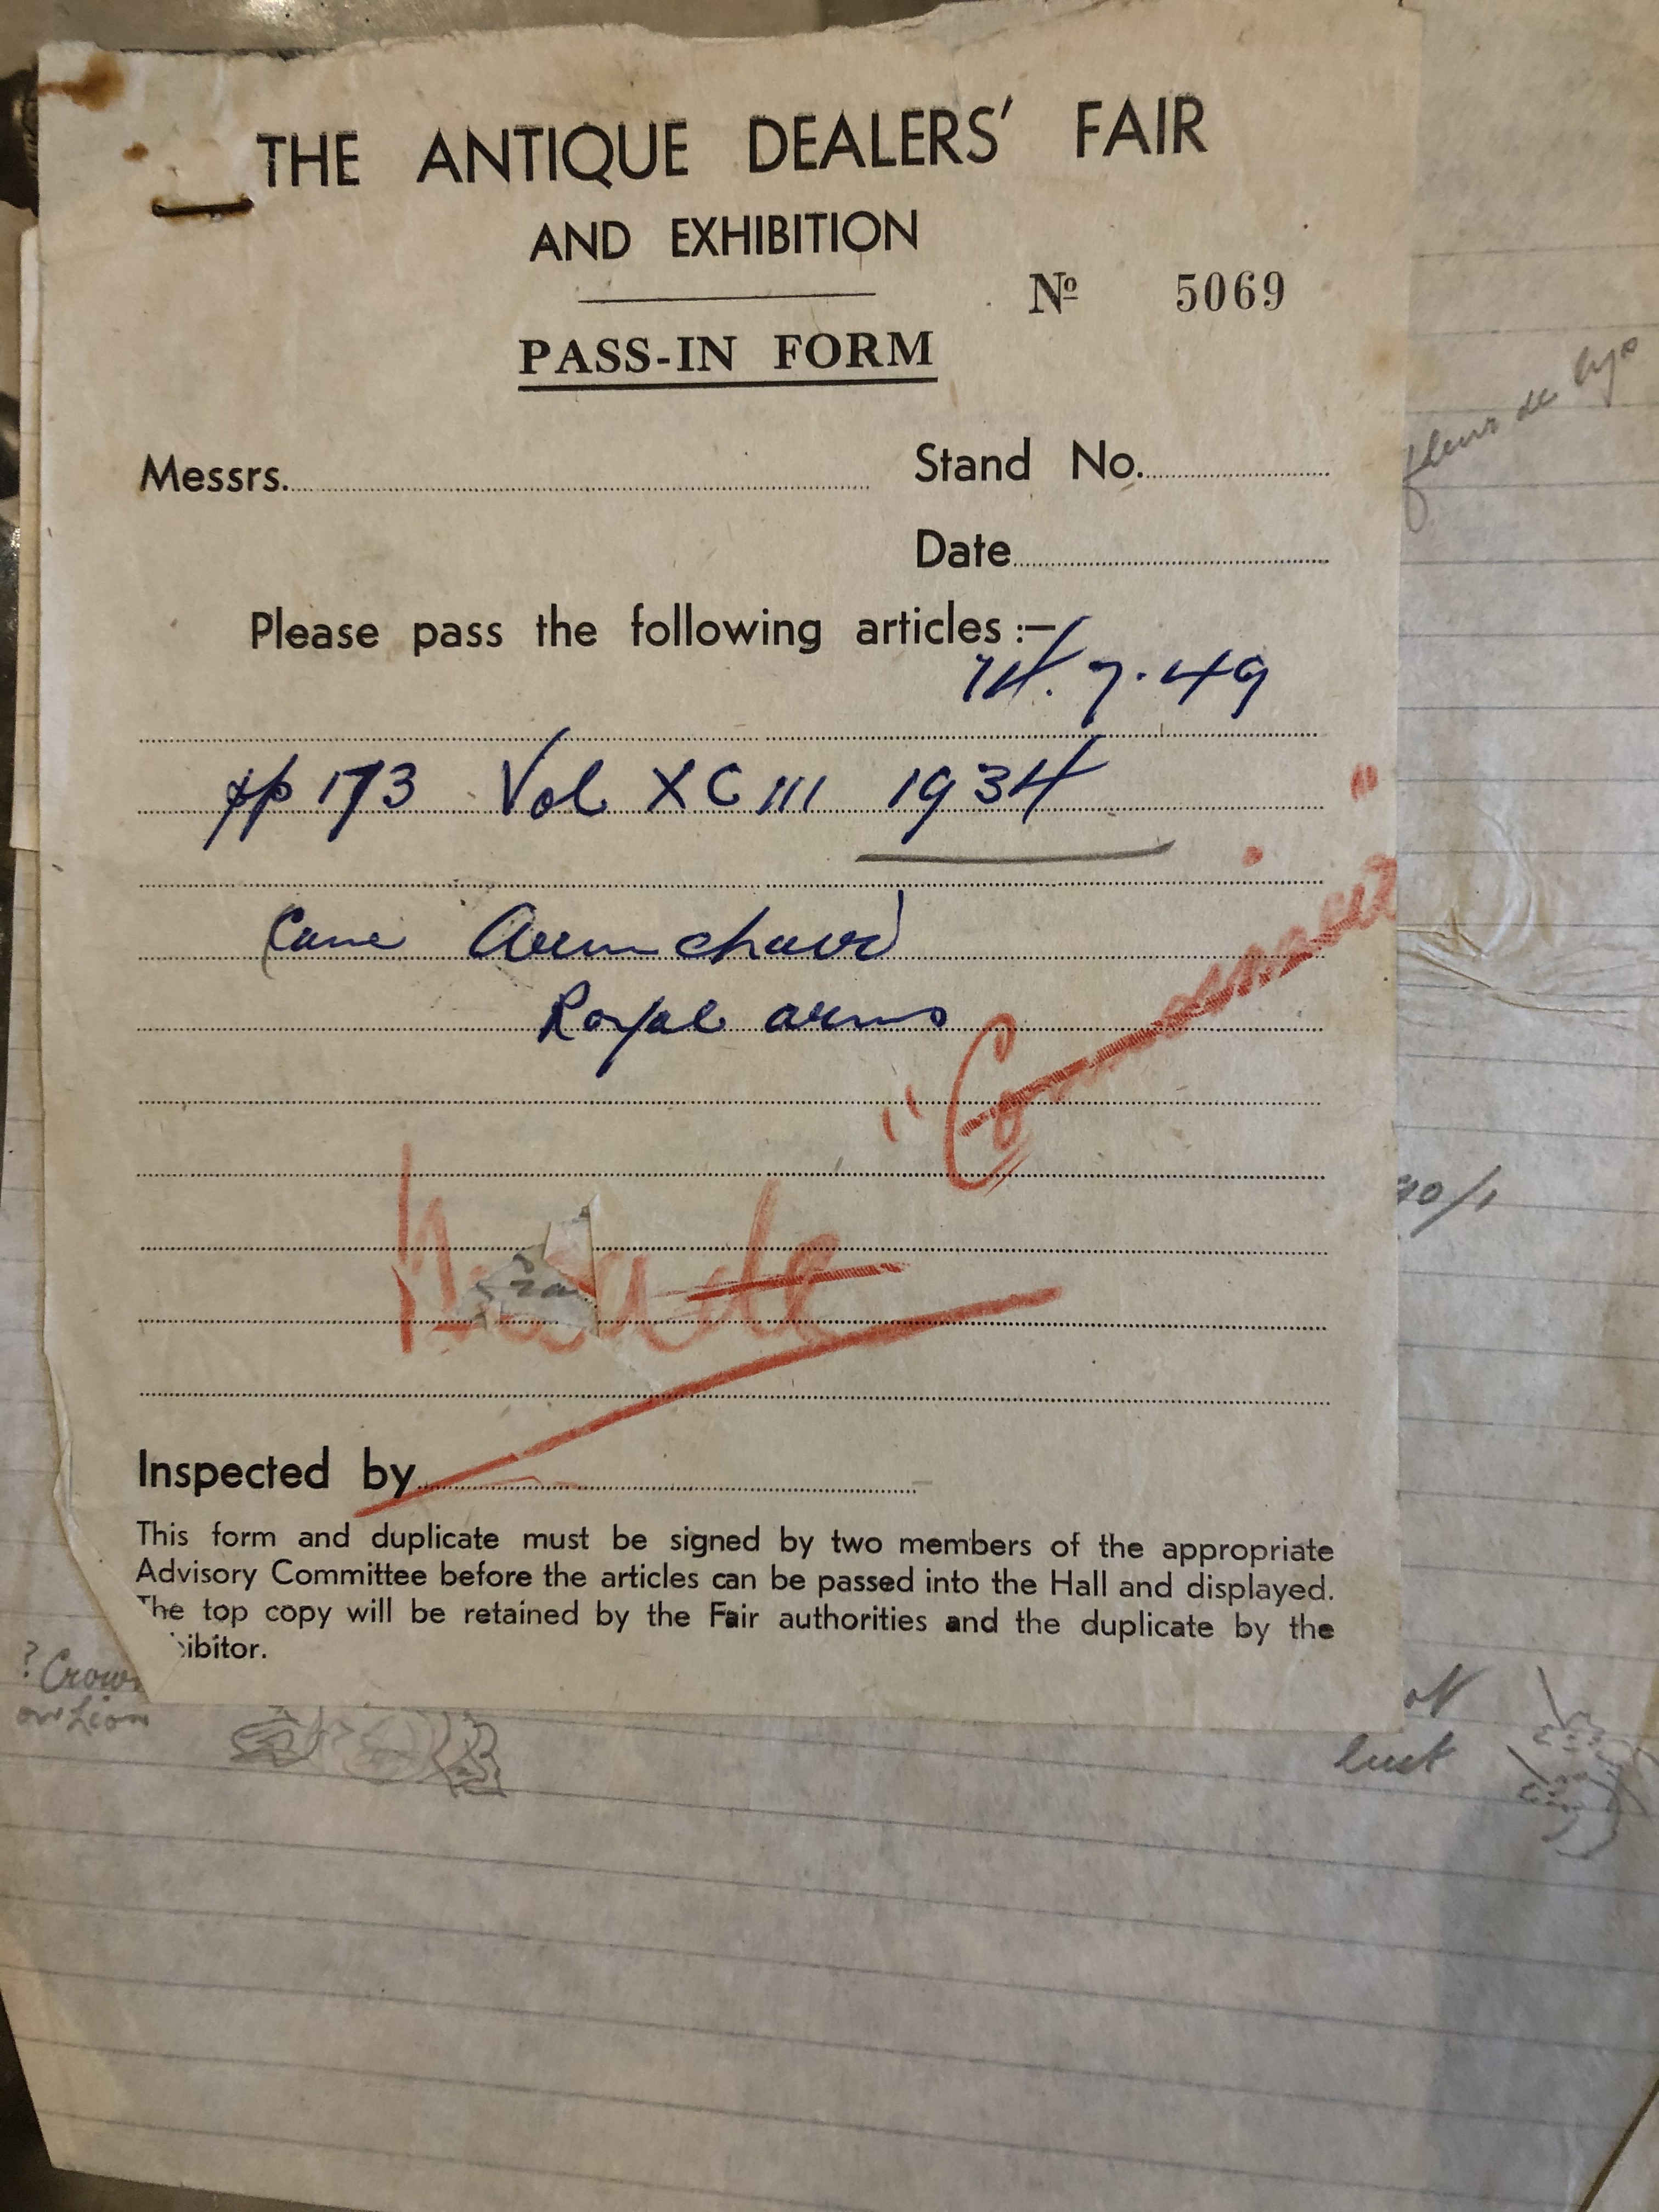 THE ANTIQUE DEALERS' FAIR
AND EXHIBITION
Nº 5069
PASS-IN FORM
Messrs. Stand No.
Date
Please pass the following articles :—
14.7.49
pp 173 Vol XCIII 1934
Cane Armchair
Royal arms
Inspected by
This form and duplicate must be signed by two members of the appropriate
Advisory Committee before the articles can be passed into the Hall and displayed.
The top copy will be retained by the Fair authorities and the duplicate by the
ibitor.
fleur de lys
? Crown
or Lion
bust